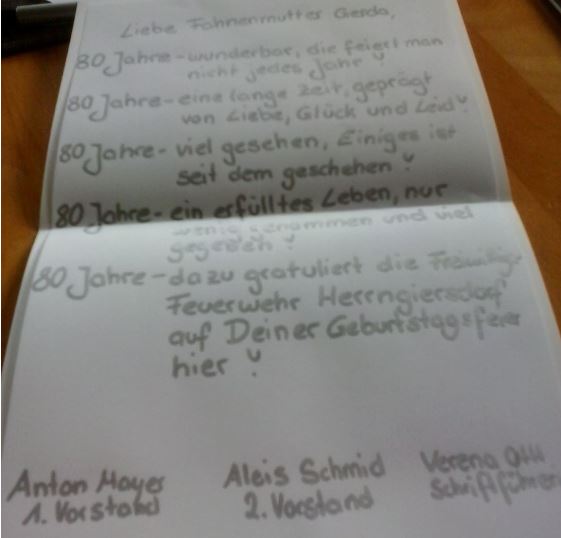 Liebe Fahnenmutter Gerda,
80 Jahre - wunderbar, die feiert man
nicht jedes Jahr!
80 Jahre - eine lange Zeit, geprägt
von Liebe, Glück und Leid!
80 Jahre - viel gesehen, Einiges ist
seit dem geschehen!
80 Jahre - ein erfülltes Leben, nur
wenig genommen und viel
gegeben!
80 Jahre - dazu gratuliert die Freiwillige
Feuerwehr Herrngiersdorf
auf Deiner Geburtstagsfeier
hier!
Anton Mayer Alois Schmid Verena
1. Vorstand 2. Vorstand Schriftführer